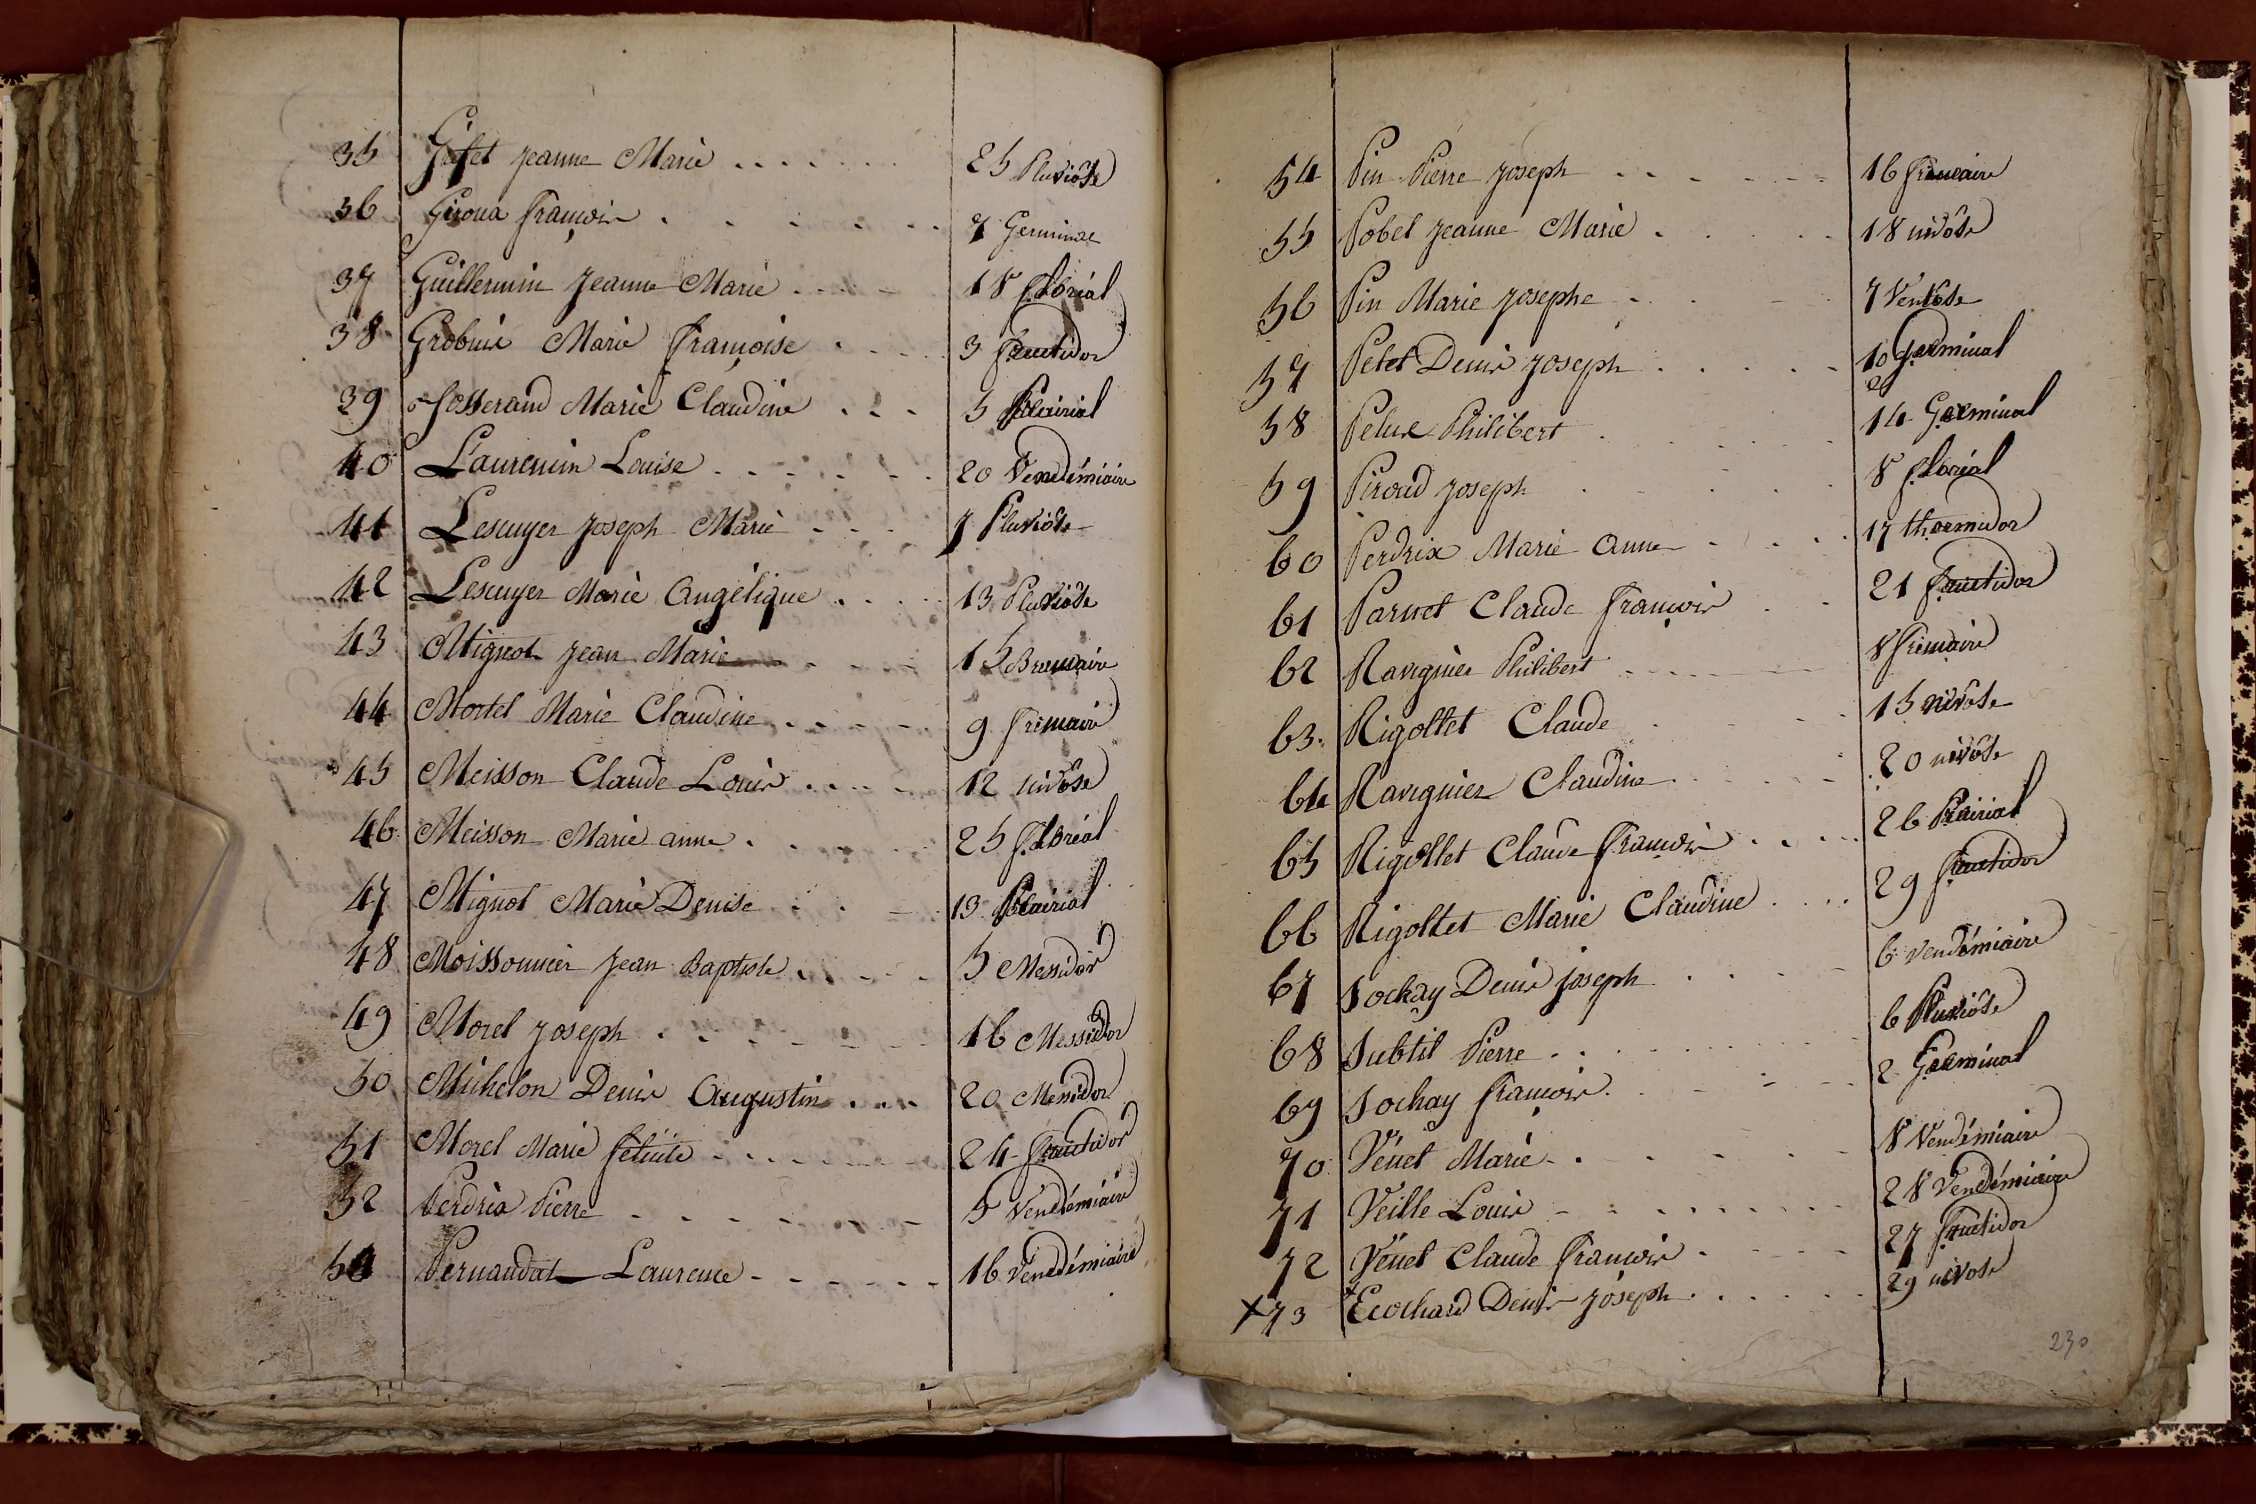 35 Gifet Jeanne Marie 25 Pluviôse
36 Giroux François 7 Germinal
37 Guillermin Jeanne Marie 18 floréal
38 Grobuis Marie françoise 3 fructidor
39 Josserand Marie Claudine 5 Prairial
40 Laurencin Louise 20 Vendémiaire
41 Lescuyer Joseph Marie 7 Pluviôse
42 Lescuyer Marie Angélique 13 Pluviôse
43 Mignot Jean Marie 15 Brumaire
44 Mortel Marie Claudine 9 frimaire
45 Meisson Claude Louis 12 nivôse
46 Meisson Marie anne 25 floréal
47 Mignot Marie Denise 13 Prairial
48 Moissonnier Jean Baptiste 5 Messidor
49 Morel Joseph 16 Messidor
50 Michelon Denis Augustin 20 Messidor
51 Morel Marie félicité 24 fructidor
52 Perdrix Pierre 5 Vendémiaire
53 Pernaudat Laurence 16 Vendémiaire
54 Pin Pierre Joseph 16 frimaire
55 Pobel Jeanne Marie 18 nivôse
56 Pin Marie Josephe 7 Ventôse
57 Petet Denis Joseph 10 germinal
58 Pelux Philibert 14 Germinal
59 Piroud Joseph 8 floréal
60 Perdrix Marie Anne 17 thermidor
61 Parnet Claude François 21 fructidor
62 Ravignier Philibert 8 frimaire
63 Rigollet Claude 15 nivôse
64 Ravignier Claudine 20 nivôse
65 Rigollet Claude François 26 Prairial
66 Rigollet Marie Claudine 29 fructidor
67 Sochay Denis Joseph 6 vendémiaire
68 Subtil Pierre 6 Pluviôse
69 Sochay François 2 Germinal
70 Vénet Marie 8 Vendémiaire
71 Veille Louis 28 Vendémiaire
72 Vénet Claude François 27 fructidor
x 73 Ecochard Denis Joseph 29 nivôse
230